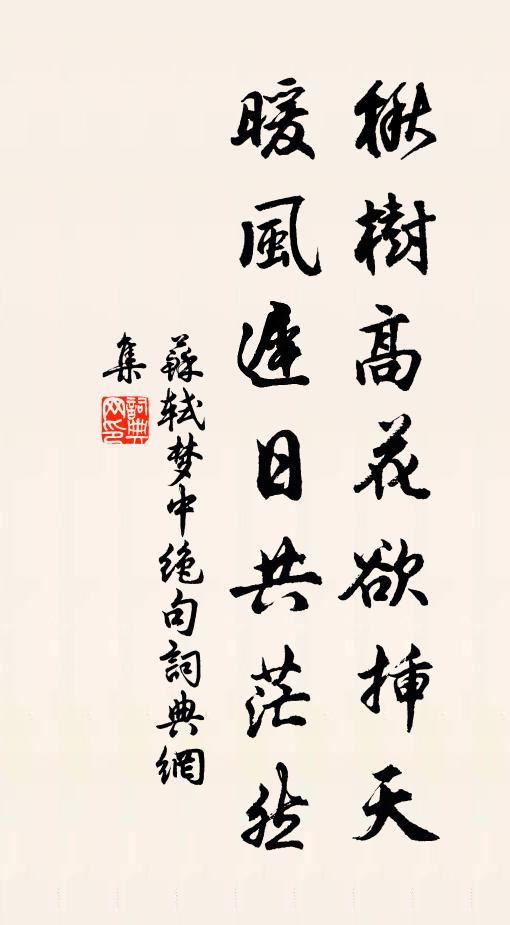 楸樹高花欲插天
暖風遲日共茫然
蘇軾梦中绝句詞典網
集
詞典網印